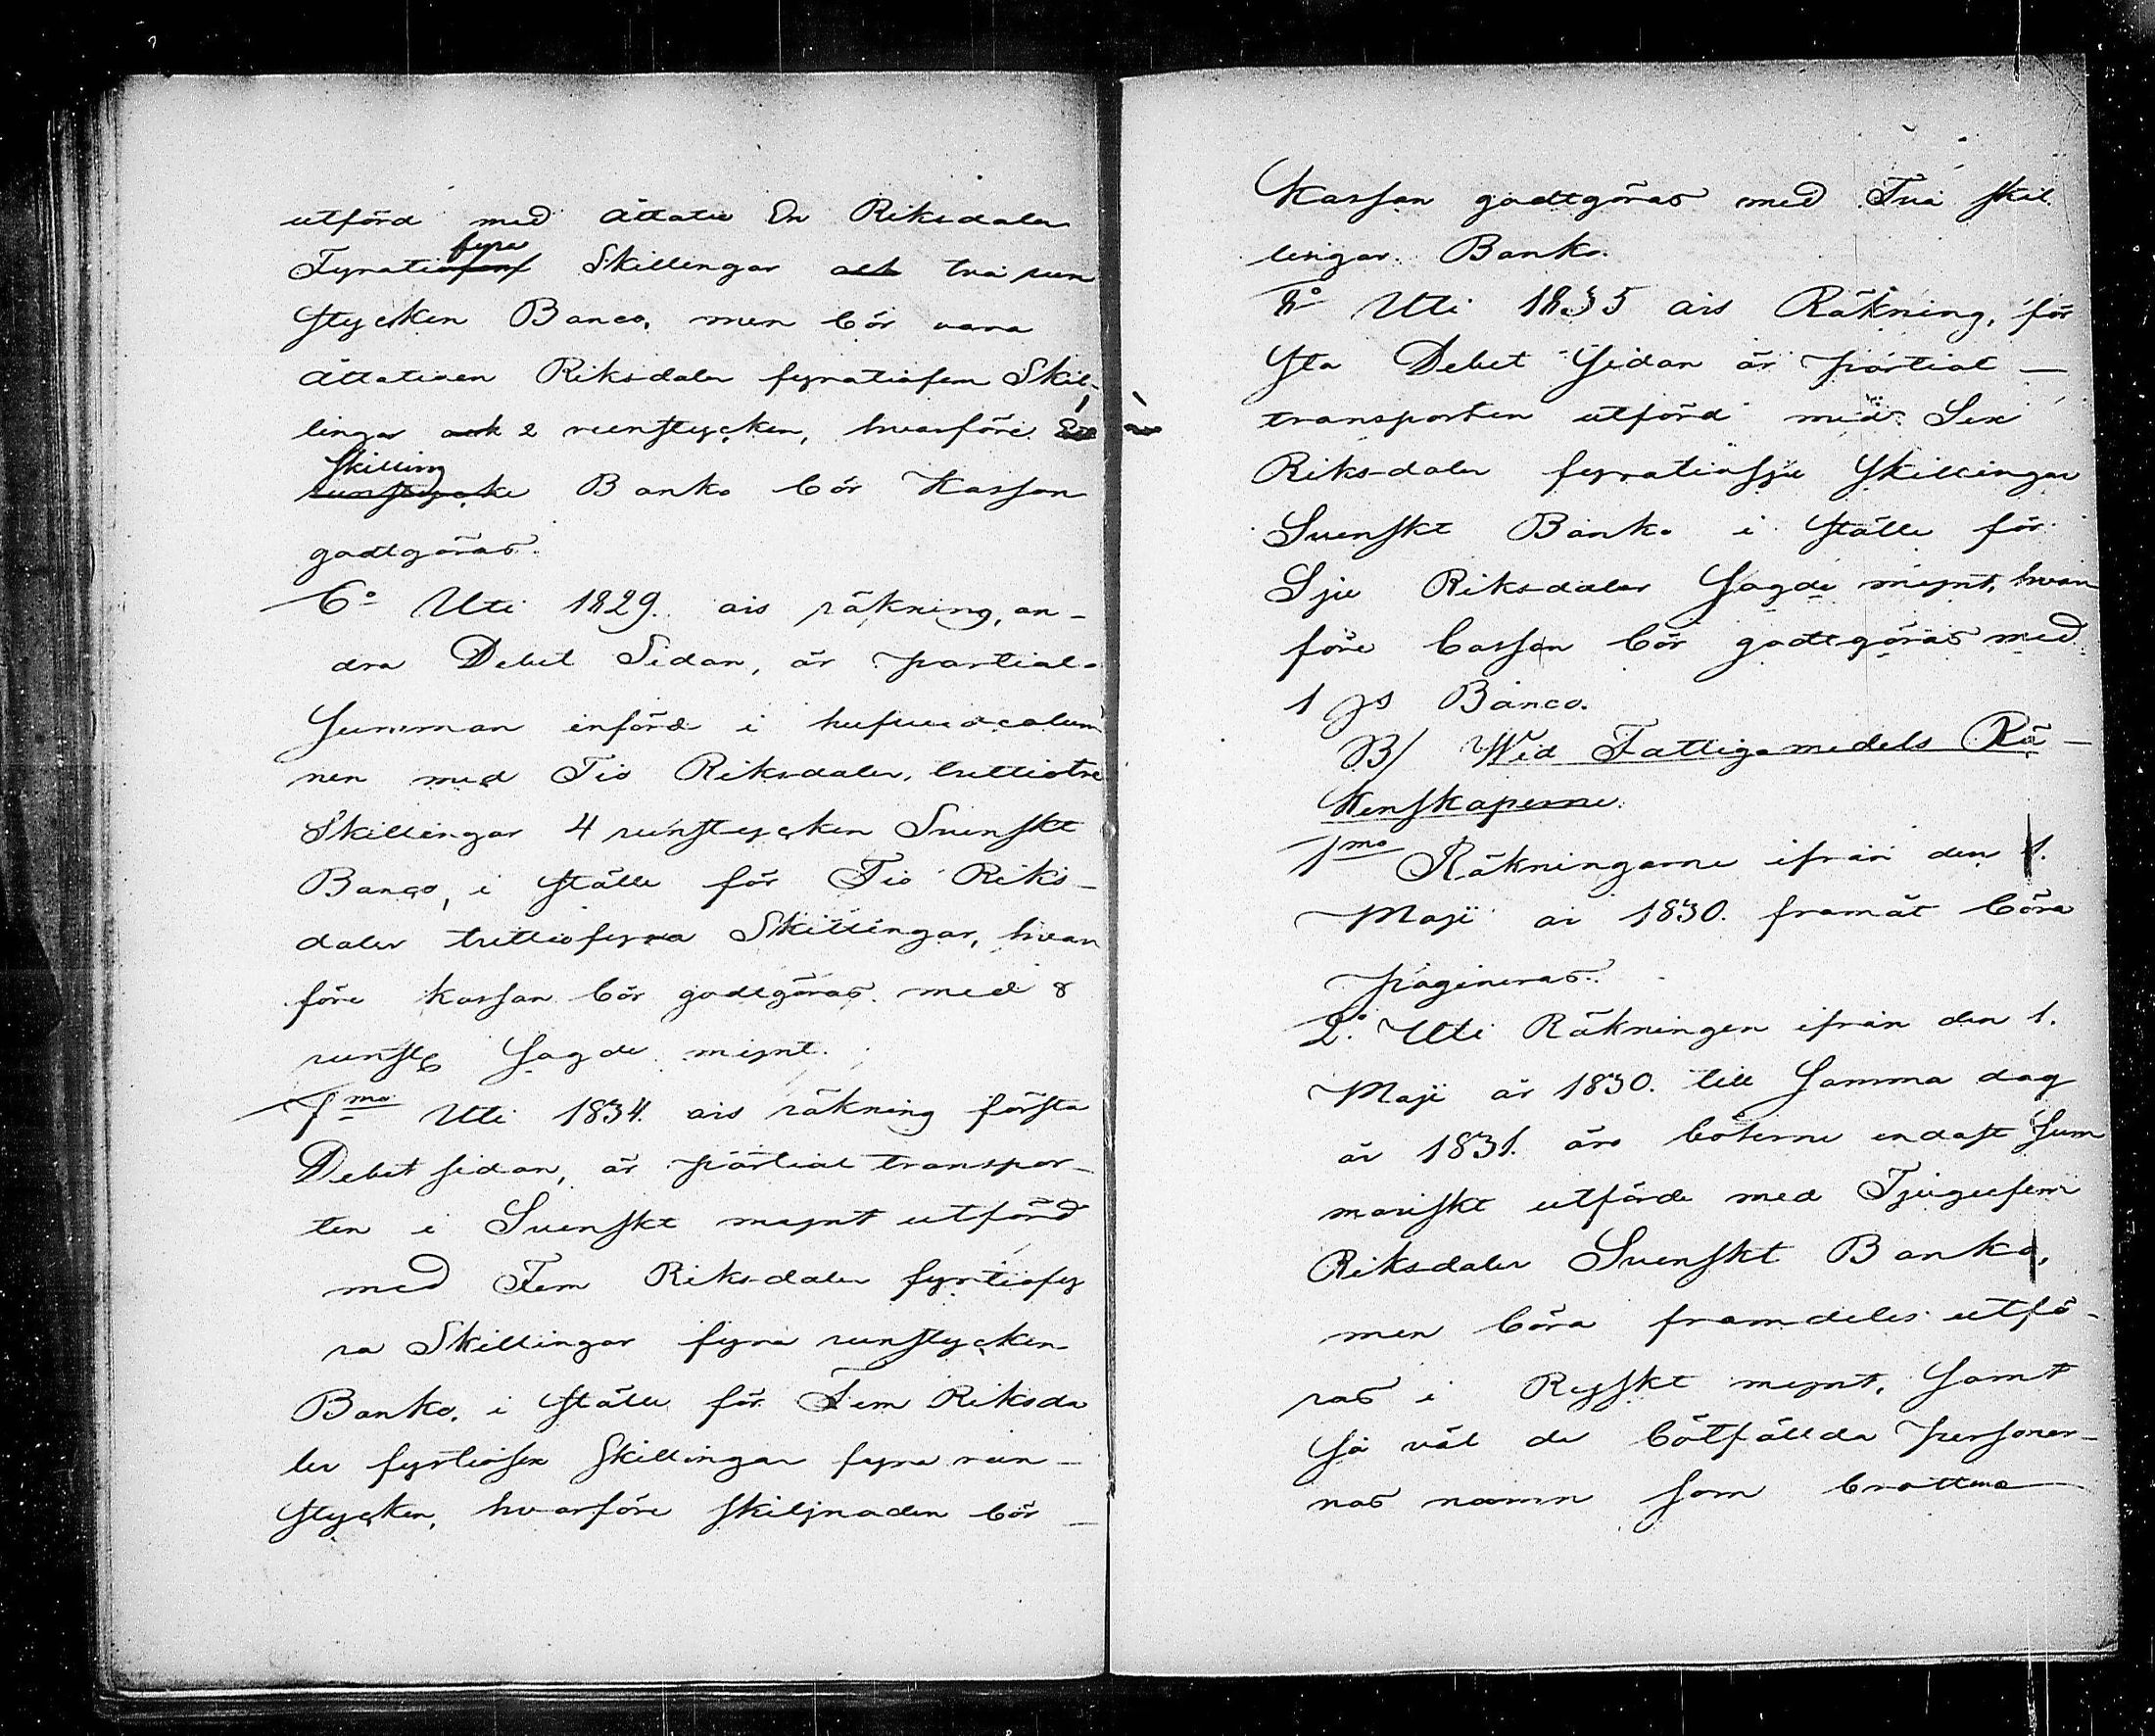 utförd med åttatio En Riksdaler
fyra
Fyratiofem Skillingar och två run
stycken Banco, men bör vara
åttatioen Riksdaler fyratiofem Skil-
lingar och 2 runstycken, hvarföre Ett
Skilling
runstycke Banko bör Kassan
godtgöras.
6o Uti 1829. års räkning, an-
dra Debet Sidan, är partial-
Summan införd i hufvudcolum
nen med Tio Riksdaler, trettiotre
Skillingar 4 runstycken Svenskt
Banco, i ställe för Tio Riks-
daler trettiofyra Skillingar, hvar
före kassan bör godtgöras med 8
runst. Sagde mynt.
7mo Uti 1834. års räkning första
Debet sidan, är partial transpor-
ten i Svenskt mynt utförd
med Fem Riksdaler fyrtiofy
ra Skillingar fyra runstycken
Banko, i ställe för Fem Riksda
ler fyrtiosex Skillingar fyra run-
stycken, hvarföre skiljnaden bör
Kassan godtgöras med Två skil
lingar Banko.
8o Uti 1835 års Räkning, för
sta Debet Sidan är partial-
transporten utförd med Sex
Riksdaler fyratiosju Skillingar
Svenskt Banko i ställe för
Sju Riksdaler Sagde mynt, hvar
före Cassan bör godtgöras med
1 ß Banco.
B/ Wid Fattigemedels Rä-
kenskaperne.
1mo Räkningarne ifrån den 1.
Maji år 1830. framåt böra
pagineras.
2o Uti Räkningen ifrån den 1.
Maji år 1830. till Samma dag
år 1831. äro böterne endast Sum
mariskt utförde med Tjugufem
Riksdaler Svenskt Banko,
men böra framdeles utfö-
ras i Ryskt mynt, Samt
Så väl de bötfällda personer-
nas namn som brottena